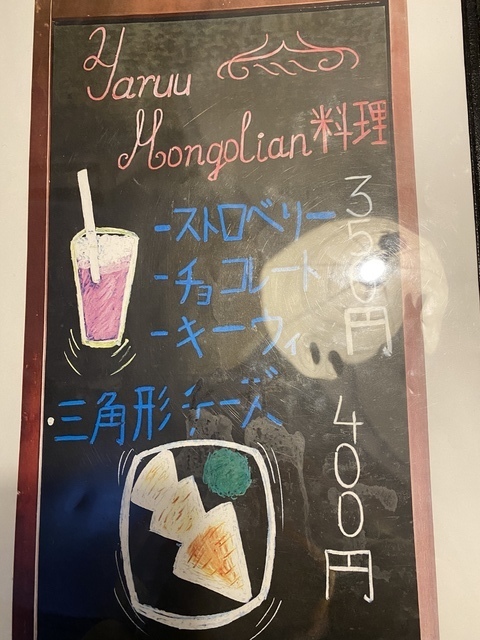 Yaruu
Mongolian料理
-ストロベリー
-チョコレート
-キーウィ
350円
三角形チーズ
400円